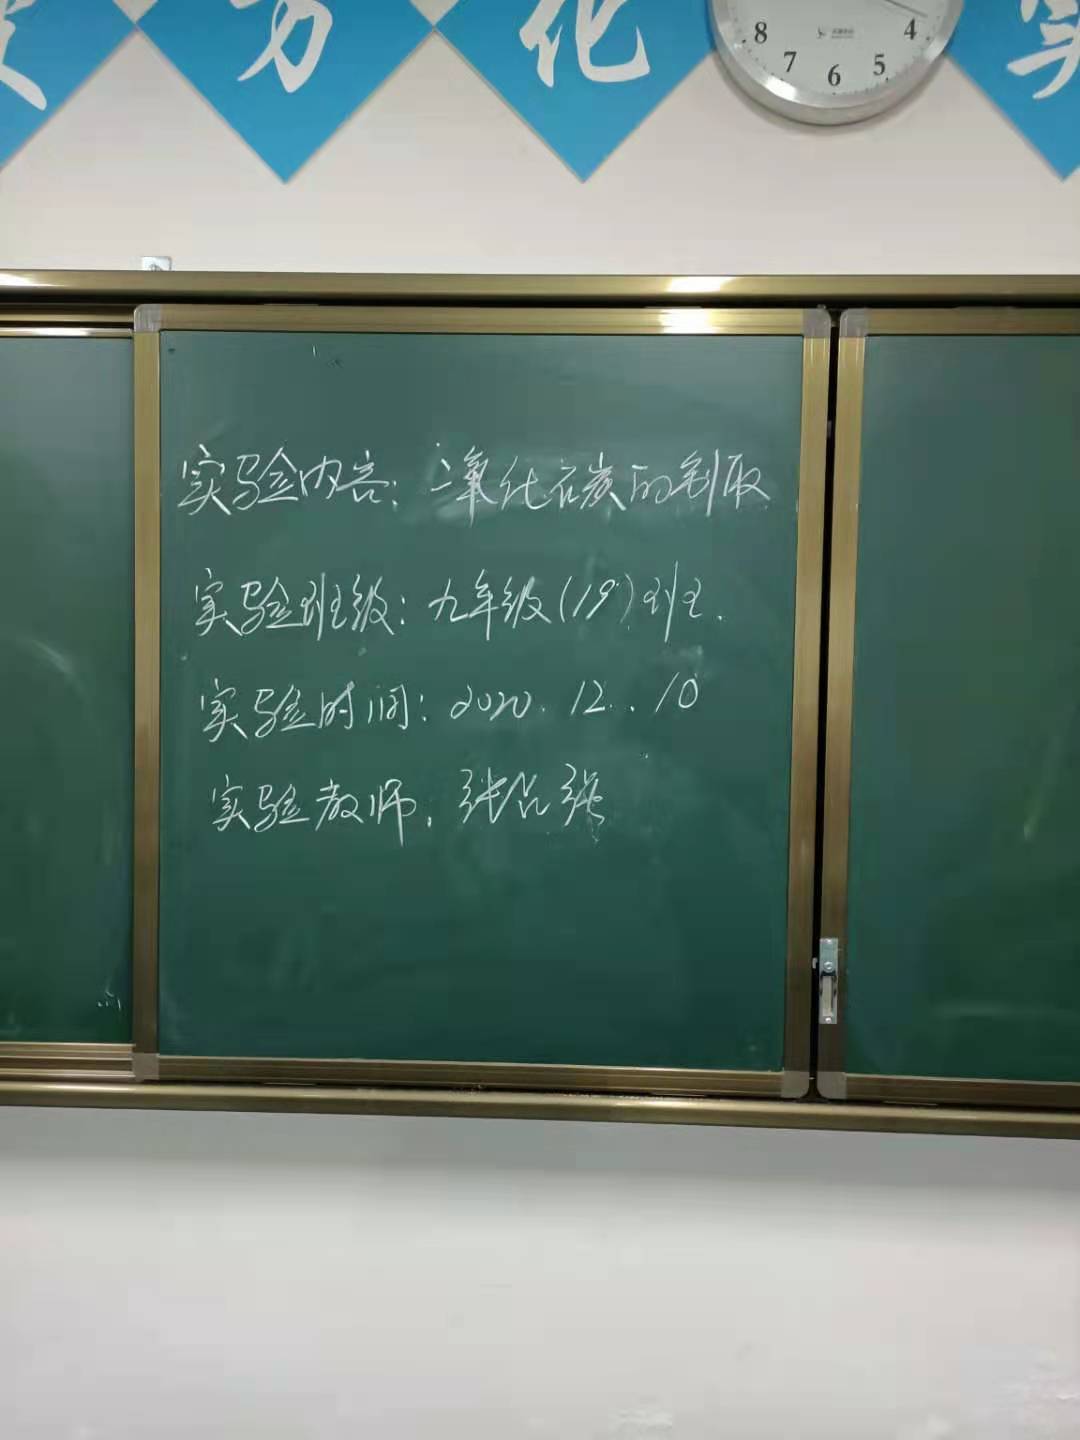 万 化 实
8 7 6 5 4
实验内容：二氧化碳的制取
实验班级：九年级(19)班.
实验时间：2020.12..10
实验教师：张昌强